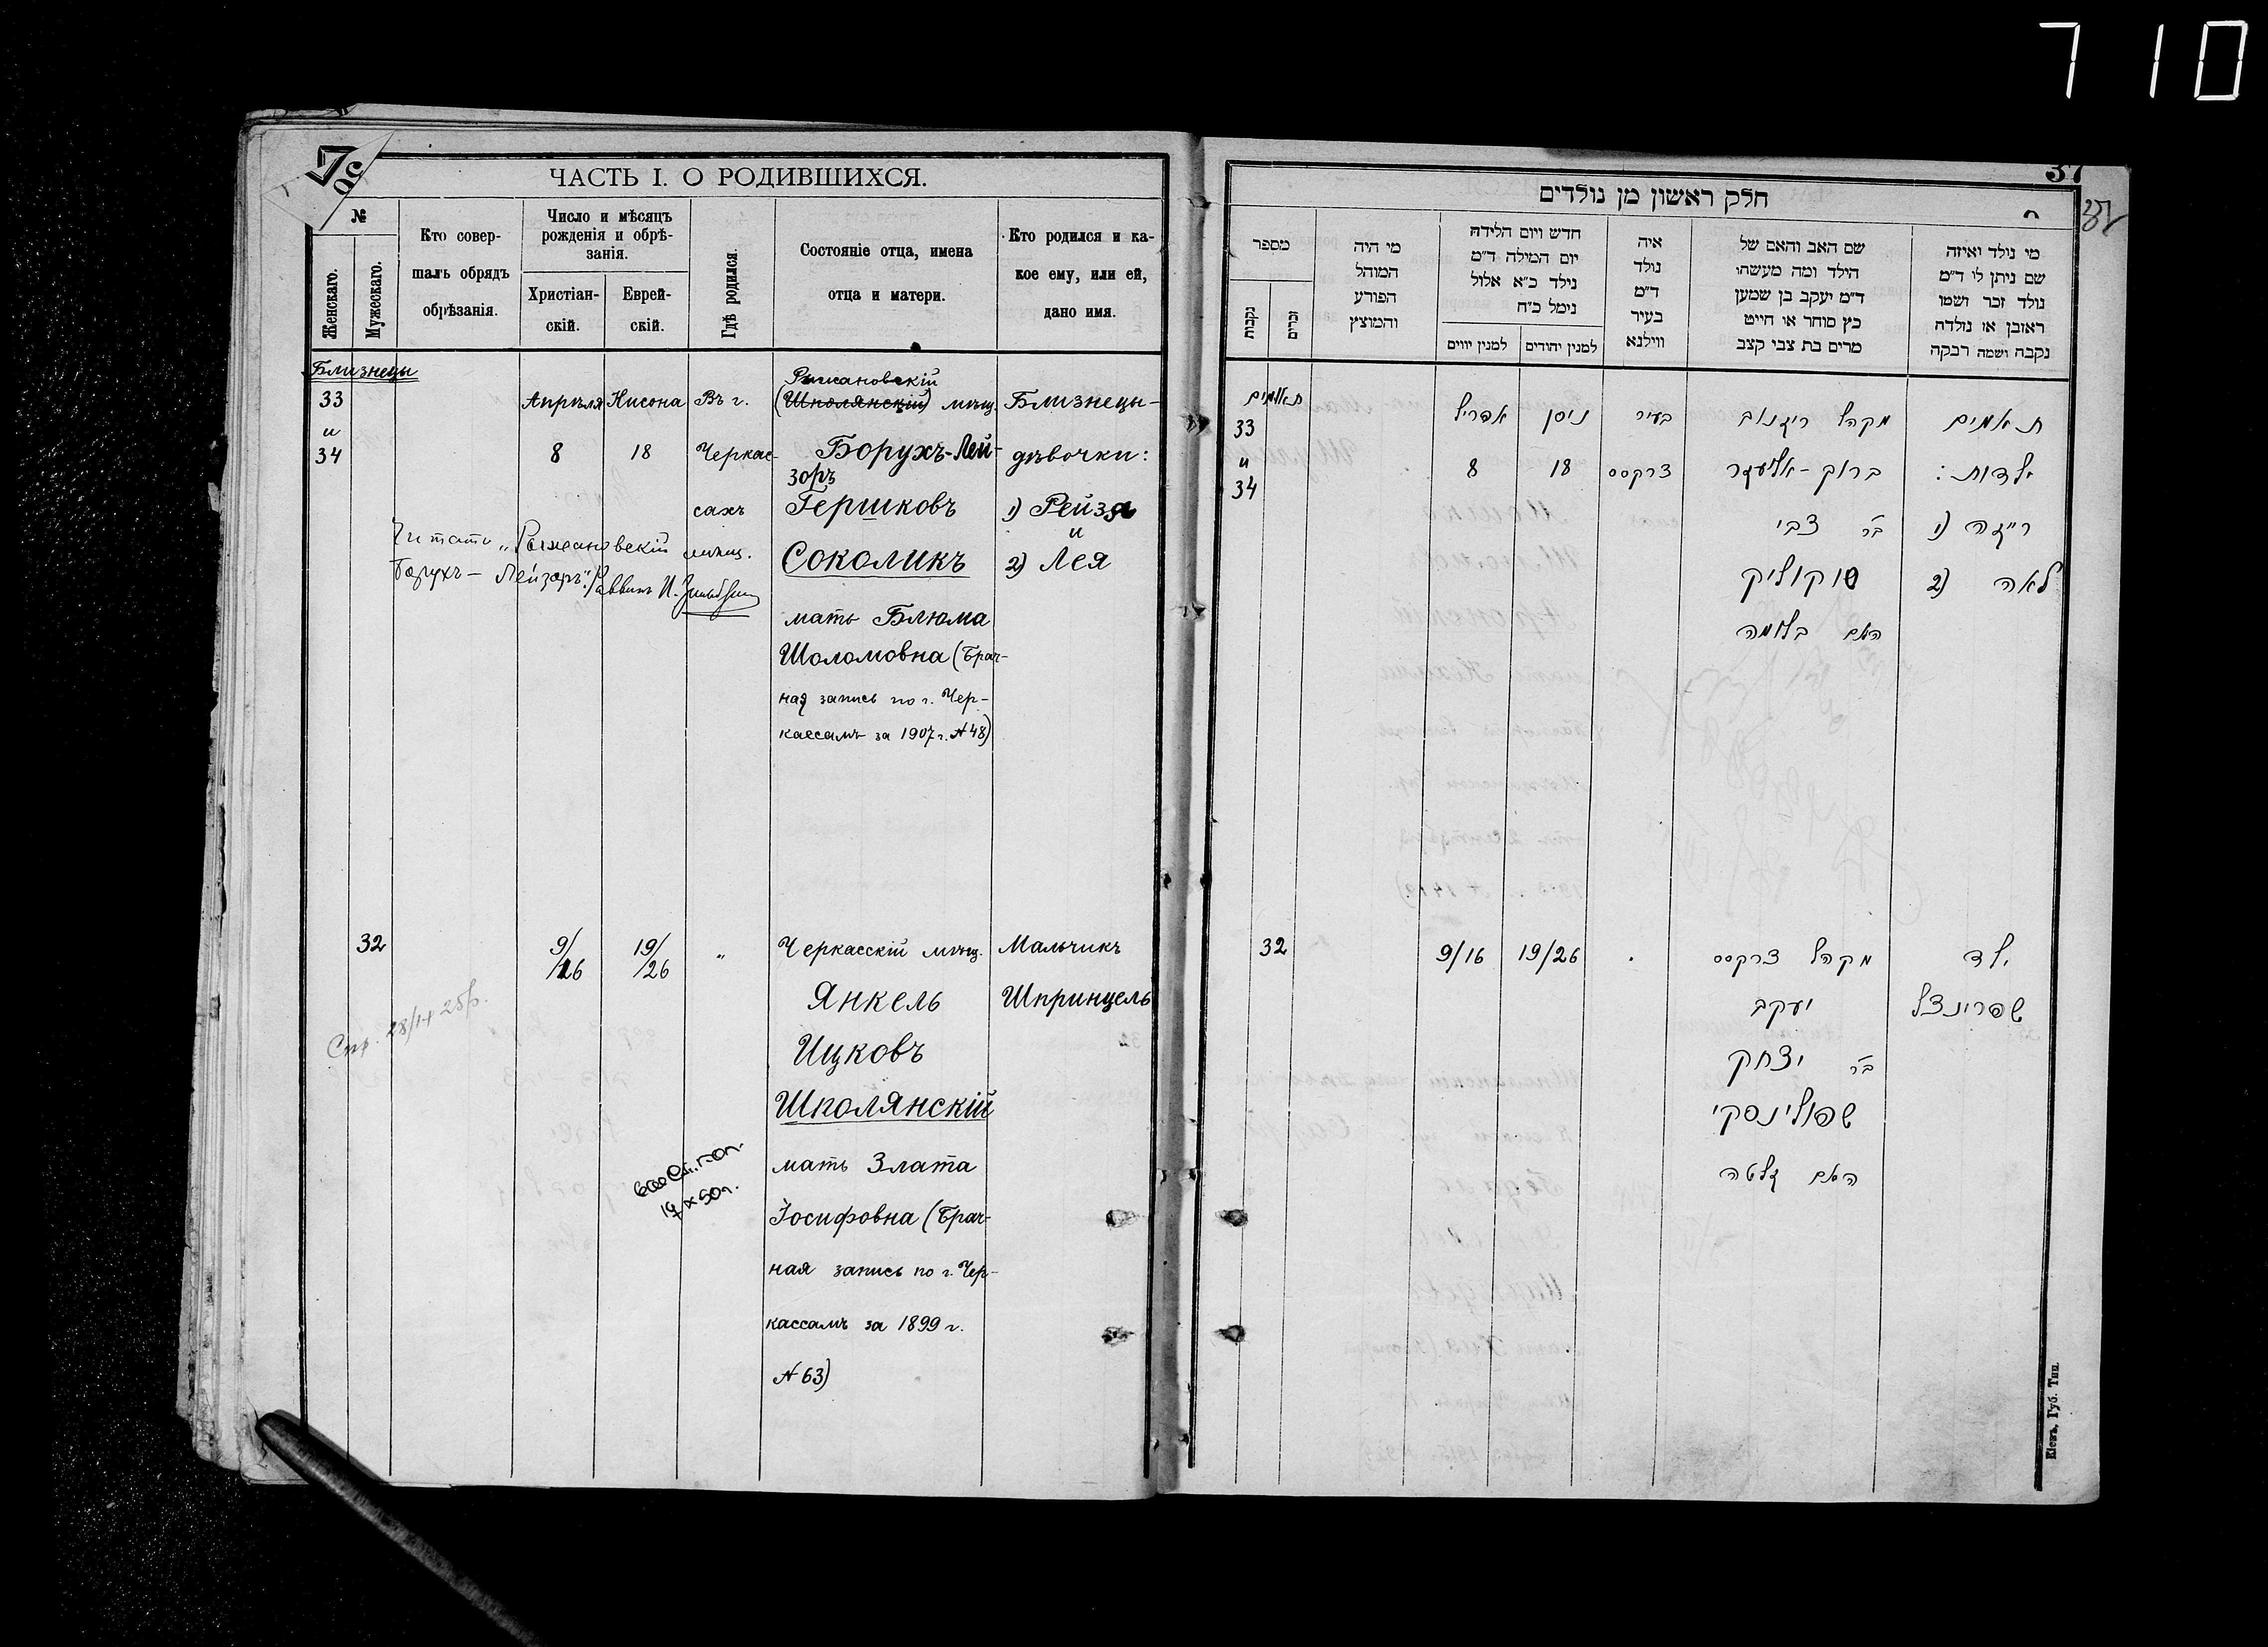 710
ЧАСТЬ I. О РОДИВШИХСЯ.
№
Женскаго.
Мужескаго.
Кто совер-
шалъ обрядъ
обрѣзанія.
Число и мѣсяцъ
рожденія и обрѣ-
занія.
Христіан-
скій.
Еврей-
скій.
Гдѣ родился.
Состояніе отца, имена
отца и матери.
Кто родился и ка-
кое ему, или ей,
дано имя.
Близнецы
33
и
34
Апрѣля
8
Нисона
18
Въ г.
Черкас-
сахъ
Рыжановскій
(Шполянскій) мѣщ.
Борухъ-Лей-
зоръ
Гершковъ
Соколикъ
мать Блюма
Шоломовна (Брач-
ная запись по г. Чер-
кассамъ за 1907 г. № 48)
Близнецы-
дѣвочки:
1) Рейзя
и
2) Лея
Читать „Рыжановскій мѣщ.
Борухъ-Лейзоръ". Раввинъ И.
32
9/
/16
19/
/26
"
Черкасскій мѣщ.
Янкель
Ицковъ
Шполянскій
мать Злата
Іосифовна (Брач-
ная запись по г. Чер-
кассамъ за 1899 г.
№ 63)
Мальчикъ
Шпринцель
Спр. 28/14 25 р.
37
חלק ראשון מן נולדים
מספר
נקבות
זכרים
מי היה
המוהל
הפורע
והמוצץ
חדש ויום הלידה
יום המילה ד״מ
נולד כ״א אלול
נימל כ״ח
למנין יווים
למנין יהודים
איה
נולד
ד״מ
בעיר
ווילנא
שם האב והאם של
הילד ומה מעשהו
ד״מ יעקב בן שמען
כץ סוחר או חייט
מרים בת צבי קצב
מי נולד ואיזה
שם ניתן לו ד״מ
נולד זכר ושמו
ראובן או נולדה
נקבה ושמה רבקה
תאומים
33
и
34
אפריל
8
ניסן
18
בעיר
צרקסס
מקהל ריזנוב
ברוך-אליעזר
בר צבי
סוקוליק
האם בלומה
תאמים
ילדות:
1) רייזה
2) לאה
32
9/16
19/26
מקהל צרקסס
יעקב
בר יצחק
שפולינסקי
האם זלטה
ילד
שפרינצל
Кіевъ, Губ. Тип.